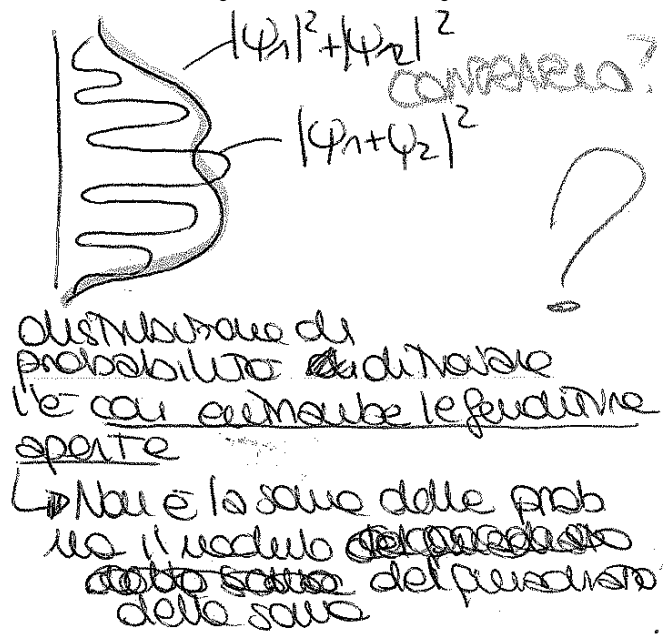 |φ1|²+|φ2|²
CONTRARIO?
|φ1+φ2|²
?
distribuzione di
probabilità di trovare
l'e con entrambe le fenditure
aperte
↳ Non è la somma delle prob
ma il modulo
del quadrato
della somma